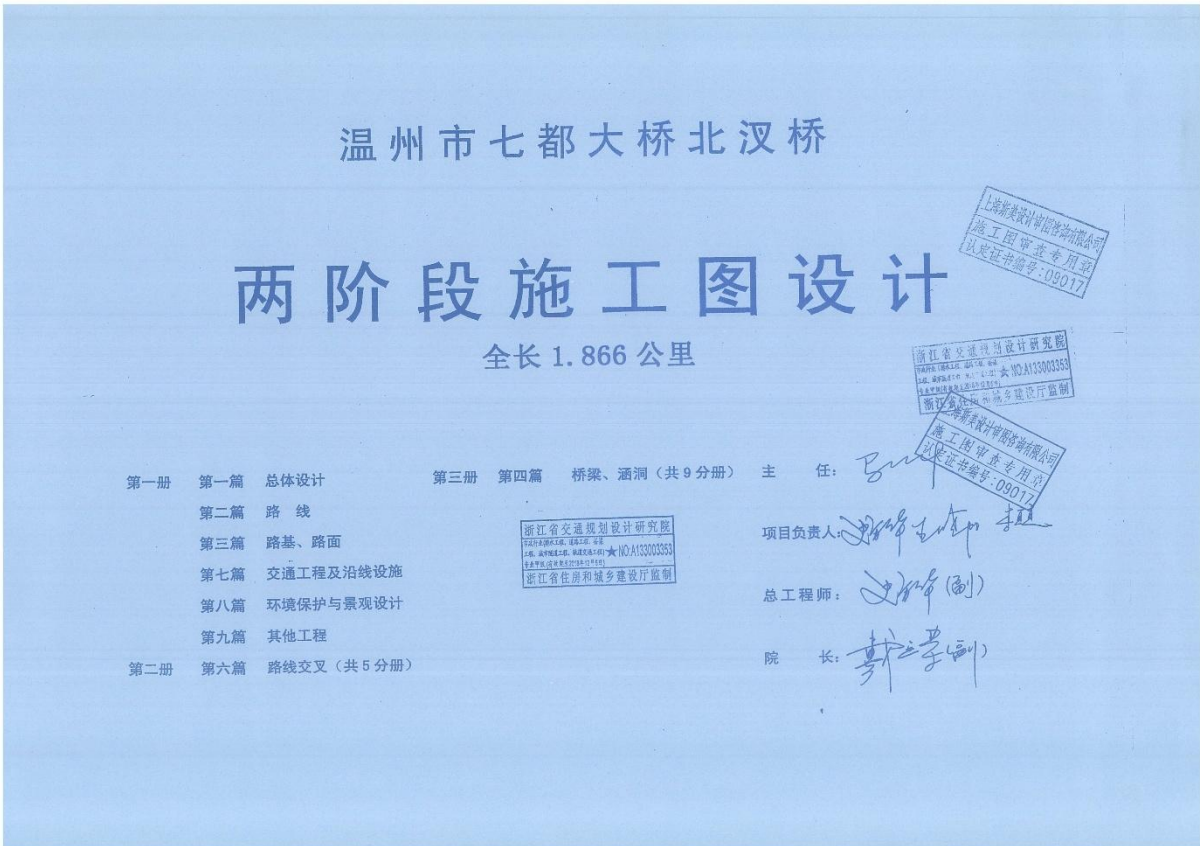 温州市七都大桥北汊桥
两阶段施工图设计
全长 1.866 公里
上海斯美设计审图咨询有限公司
施工图审查专用章
认定证书编号:09017
浙江省交通规划设计研究院
★NO:A133003353
浙江省住房和城乡建设厅监制
上海斯美设计审图咨询有限公司
施工图审查专用章
认定证书编号:09017
第一册 第一篇 总体设计
第二篇 路 线
第三篇 路基、路面
第七篇 交通工程及沿线设施
第八篇 环境保护与景观设计
第九篇 其他工程
第二册 第六篇 路线交叉(共5分册)
第三册 第四篇 桥梁、涵洞(共9分册)
浙江省交通规划设计研究院
★NO:A133003353
浙江省住房和城乡建设厅监制
主 任:
项目负责人:
总工程师: (副)
院 长: (副)